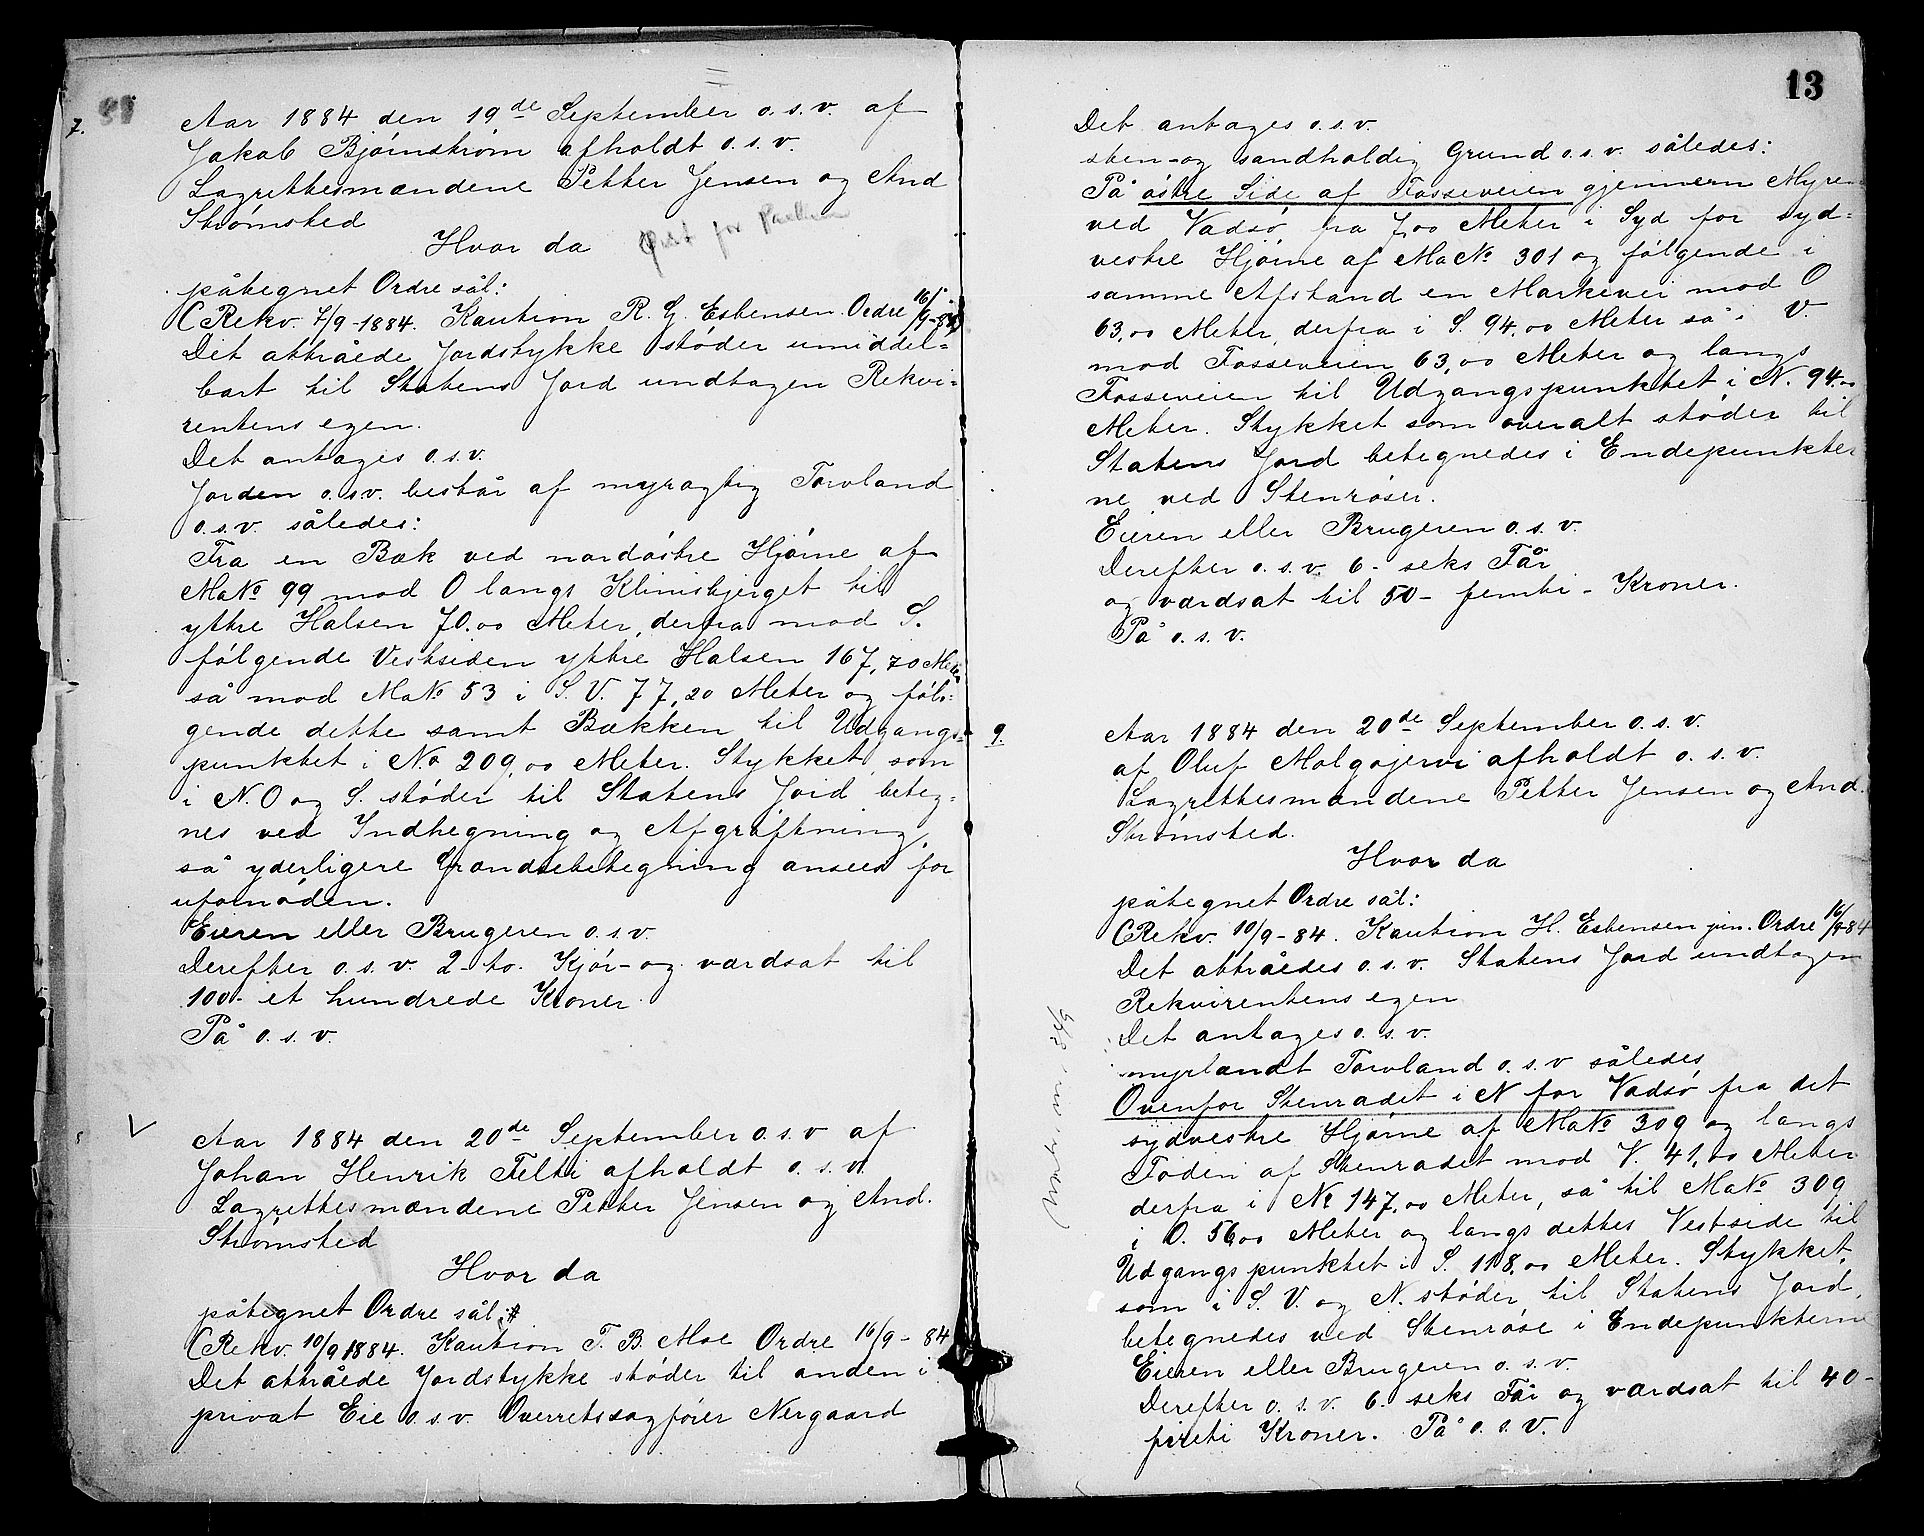 7.
Aar 1884 den 19de September o. s. v. af
Jakob Bjørnstrøm afholdt o. s. v.
Lagrettesmændene Petter Jensen og And
Strømsted
Hvor da
påtegnet Ordre sål:
(Rekv. 7/9-1884. Kaution R. G. Esbensen. Ordre 16/9-84)
Det attråede Jordstykke støder umiddel-
bart til Statens Jord undtagen Rekvi-
rentens egen.
Det antages o. s. v.
Jorden o. s. v. består af myragtig Torvland
o. s. v. således:
Fra en Bæk ved nordøstre Hjørne af
MaNo 99 mod O langs Klinisbjerget til
yttre Halsen 70.00 Meter, derfra mod S.
følgende Vestsiden yttre Halsen 167,70 Meter
så mod MaNo 53 i S. V. 77,20 Meter og føl-
gende dette samt Bækken til Udgangs-
punktet i No 209,00 Meter. Stykket, som
i N. O og S. støder til Statens Jord beteg-
nes ved Indhegning og Afgrøftning,
så yderligere Grændsebetegning ansees for
ufornøden.
Eieren eller Brugeren o. s. v.
Derefter o. s. v. 2- to. Kjør- og værdsat til
100- et hundrede Kroner.
På o. s. v.
8
Aar 1884 den 20de September o. s. v. af
Johan Henrik Felti afholdt o. s. v.
Lagrettesmændene Petter Jensen og And.
Strømsted
Hvor da
påtegnet Ordre sål:
(Rekv. 10/9 1884. Kaution T. B. Moe Ordre 16/9-84
Det attråede Jordstykke støder til anden i
privat Eie o. s. v. Overretssagfører Nergaard
13
Det antages o. s. v.
sten- og sandholdig Grund o. s. v. således:
På østre Side af Fosseveien gjennem Myren
ved Vadsø fra 7,00 Meter i Syd for syd-
vestre Hjørne af MaNo 301 og følgende i
samme Afstand en Markevei mod O
63,00 Meter, derfra i S. 94,00 Meter så i V.
mod Fosseveien 63,00 Meter og langs
Fosseveien til Udgangspunktet i N. 94.00
Meter. Stykket som overalt støder til
Statens Jord betegnedes i Endepunkter
ne ved Stenrøser.
Eieren eller Brugeren o. s. v.
Derefter o. s. v. 6- seks Får
og værdsat til 50- femti- Kroner.
På o. s. v.
9
Aar 1884 den 20de September o. s. v.
af Oluf Molgojervi afholdt o. s. v.
Lagrettesmændene Petter Jensen og And.
Strømsted.
Hvor da
påtegnet Ordre sål:
(Rekv. 10/9-84. Kaution H. Esbensen jun. Ordre 16/9-84
Det attråedes o. s. v. Statens Jord undtagen
Rekvirentens egen
Det antages o. s. v.
myrlændt Torvland o. s. v således
Ovenfor Stenradet i N for Vadsø fra det
sydvestre Hjørne af MaNo 309 og langs
Foden af Stenradet mod V. 41,00 Meter
derfra i No 147,00 Meter, så til MaNo 309
i O. 56,00 Meter og langs dettes Vestside til
Udgangspunktet i S. 118,00 Meter. Stykket,
som i S. V. og N. støder til Statens Jord,
betegnedes ved Stenrøse i Endepunkterne
Eieren eller Brugeren o. s. v.
Derefter o. s. v. 6. seks Får og værdsat til 40-
firti Kroner. På o. s. v.